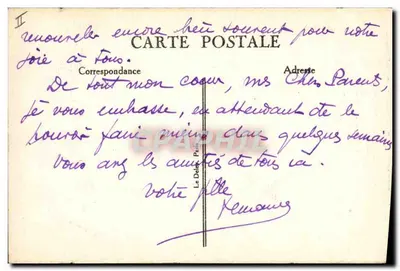 II
renouveler encore bien souvent pour notre
joie à tous.
CARTE POSTALE
Correspondance
Adresse
De tout mon coeur, mes Chers Parents,
je vous embrasse, en attendant de le
pouvoir faire mieux dans quelques semaines
Vous avez les amitiés de tous ici.
Votre fille